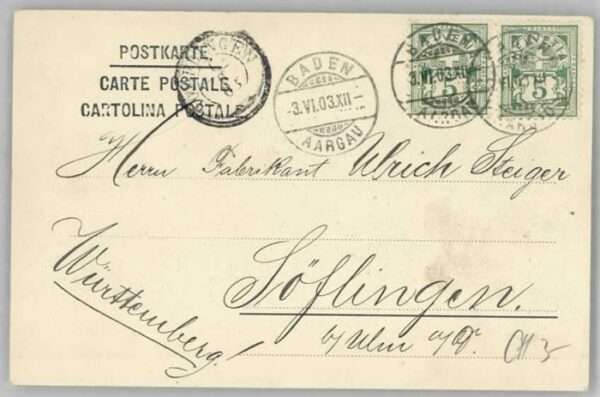 POSTKARTE.
CARTE POSTALE.
CARTOLINA POSTALE.
BADEN
3.VI.03.XII
AARGAU
BADEN
3.VI.03.XII
5
5
Herrn Fabrikant Ulrich Steiger
Söflingen.
Württemberg.
b/ Ulm a/D.